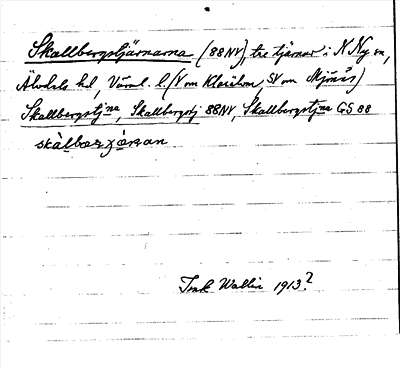 Skallbergstjärnarna (88NV), tre tjärnar i N Ny sn,
Älvdals hd, Värml. l. (V om Klarälven, SV om Mjönäs)
Skallbergstjna, Skallbergstj 88NV, Skallbergstjna GS 88
skàlbærjǻnan
Isak Wallin 1913?